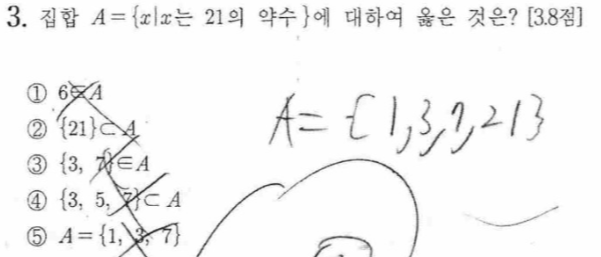 3. 집합 A={x|x는 21의 약수}에 대하여 옳은 것은? [3.8점]
① 6∈A
② {21}⊂A
③ {3, 7}∈A
④ {3, 5, 7}⊂A
⑤ A={1, 3, 7}
A={1,3,7,21}